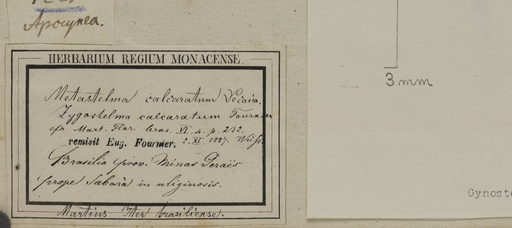 Apocynea.
HERBARIUM REGIUM MONACENSE.
Metastelma calcaratum Decaisn.
Zygostelma calcaratum Fournier
cfr. Mart. Flor. bras. VI. 4. p. 232.
remisit Eug. Fournier. 2. XI. 1887.
Brasilia prov. Minas Geraës
prope Sabarà in uliginosis.
Martius Iter brasiliense.
3 mm
Gynoste